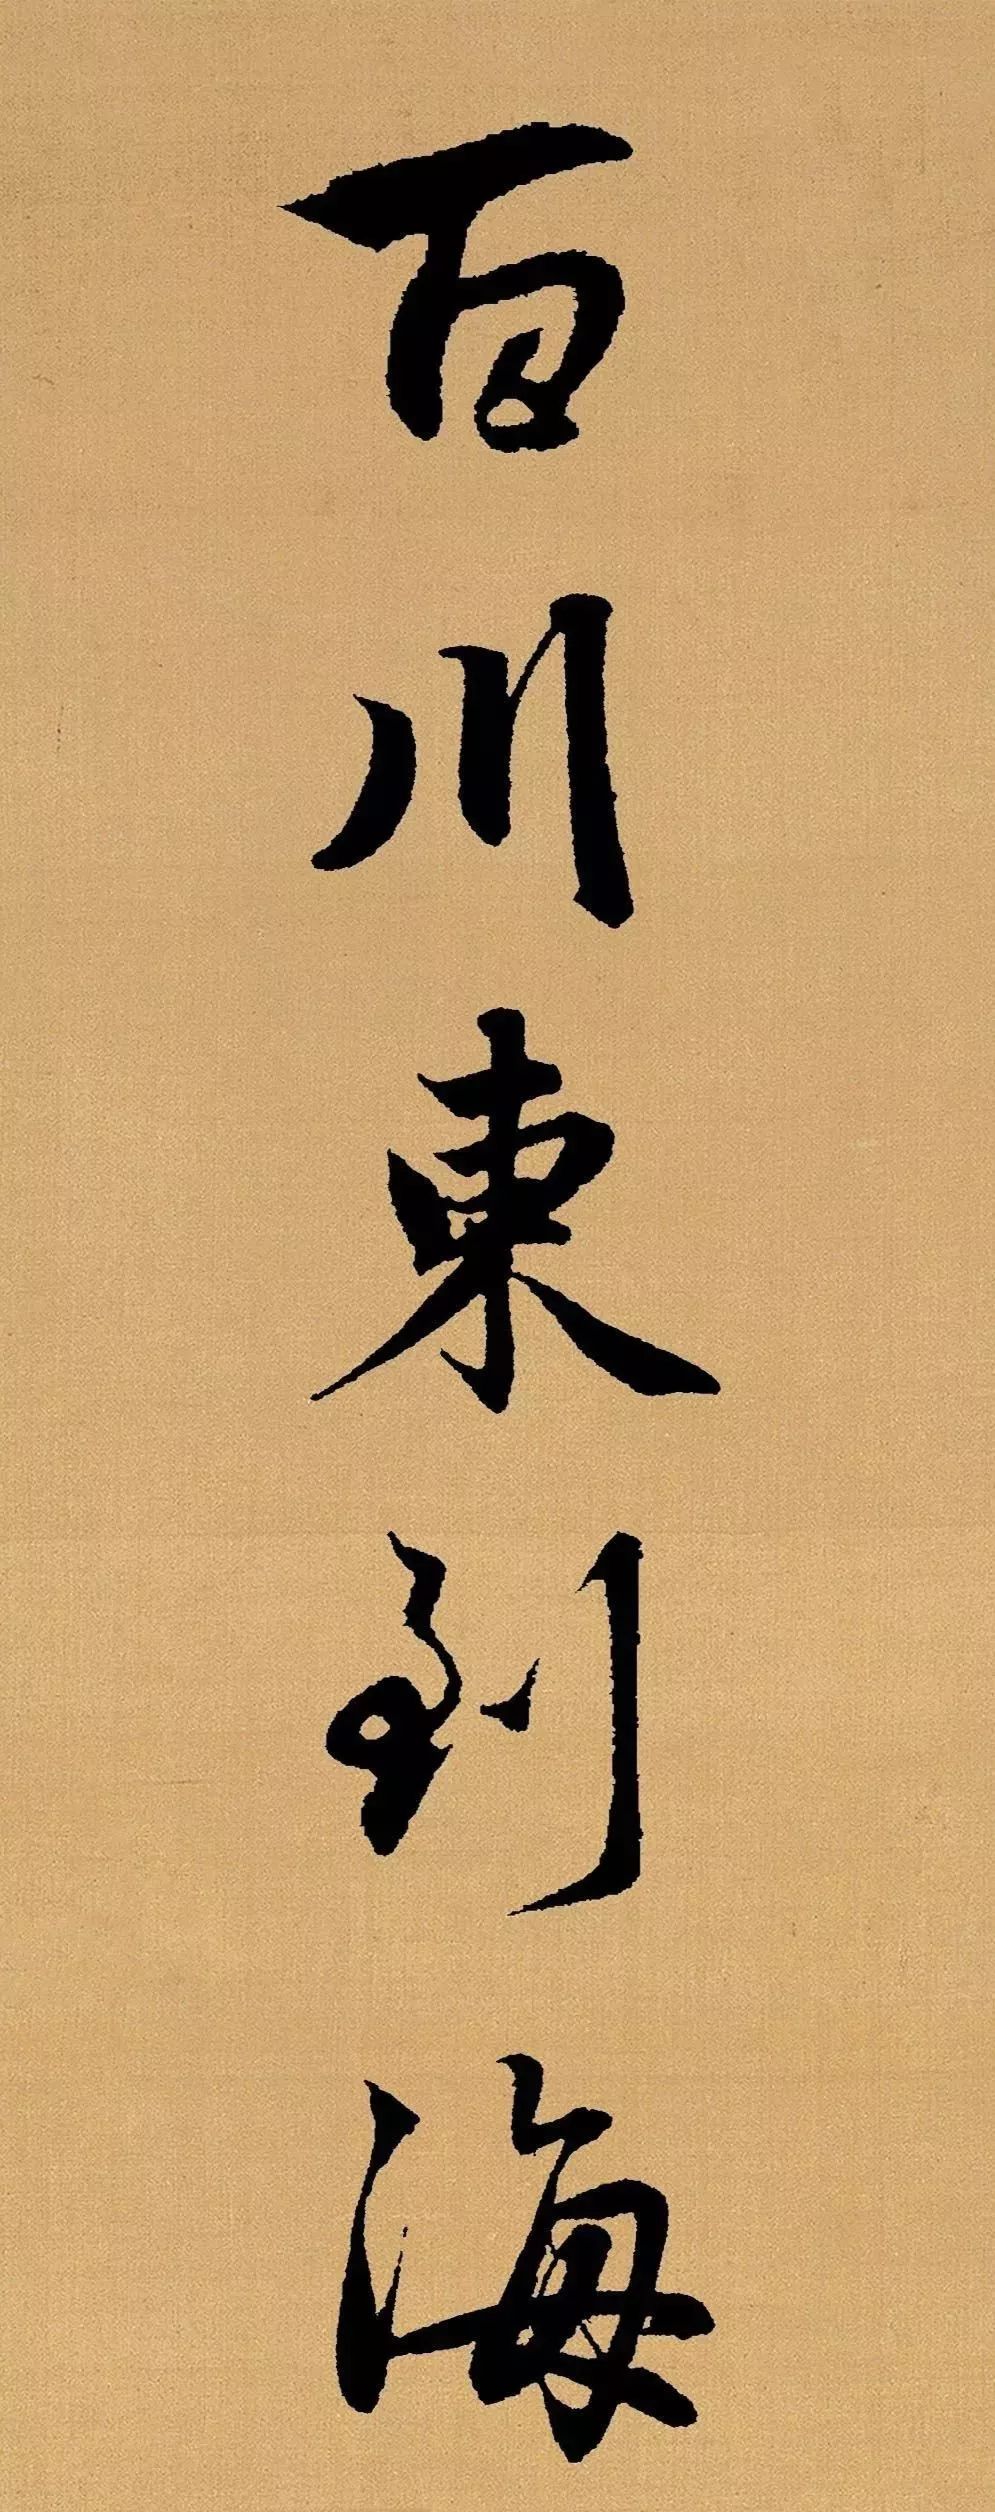 百川東到海